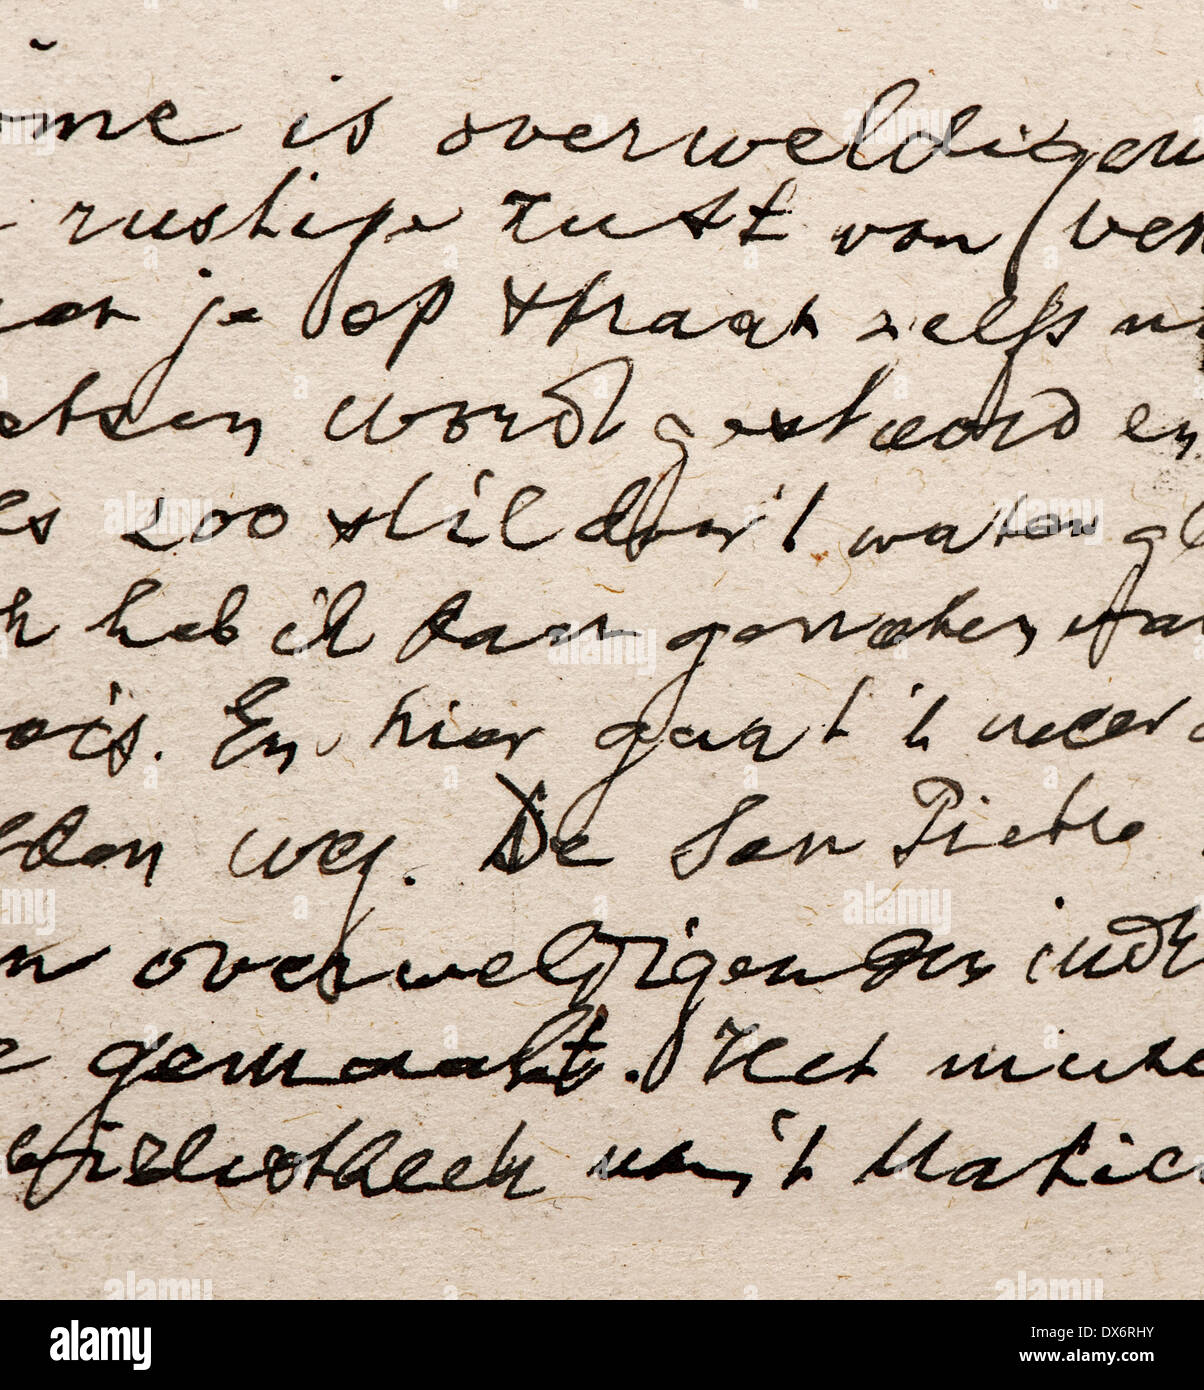 ome is overweldigen
rustige rust van Ven
er je op straat zelfs
etsen wordt gestoord en
es zoo stil door 't water gl
k heb ik daar genoten
ois. En hier gaat 't weer
den weg. De San Pietro
n overweldigenden indr
e gemaakt. Het
Bibliotheek van 't Vatica
alamy
Image ID: DX6RHY
www.alamy.com